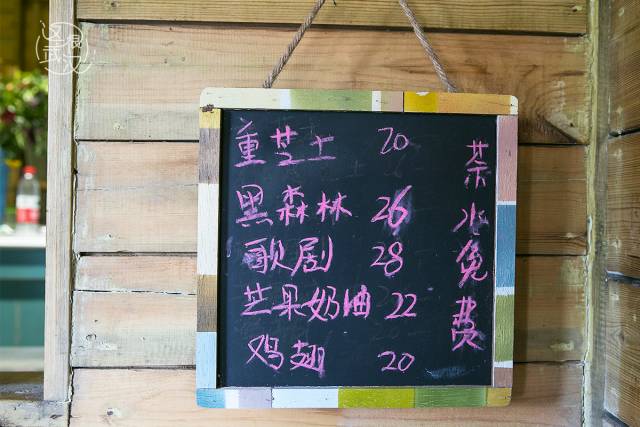 重芝士 20
黑森林 26
歌剧 28
芒果奶油 22
鸡翅 20
茶水免费